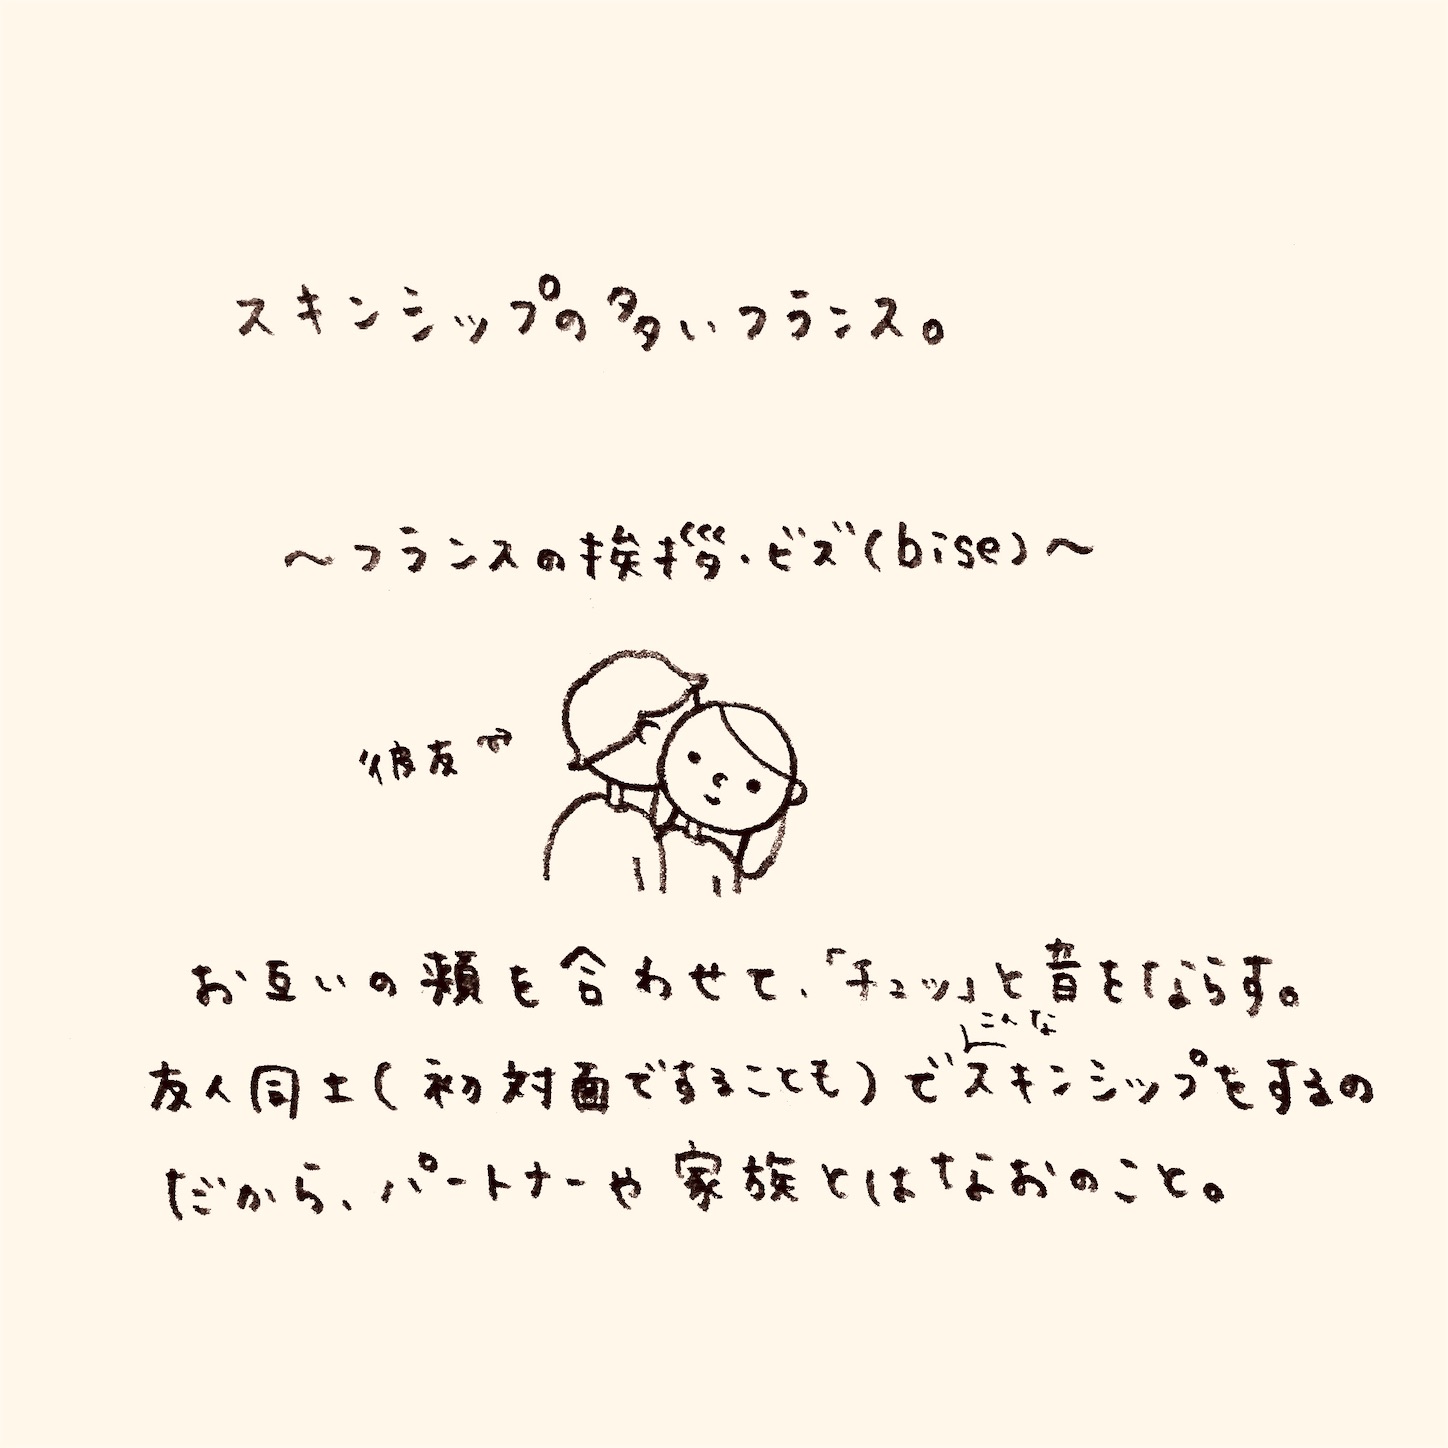 スキンシップの多いフランス。
〜フランスの挨拶・ビズ(bise)〜
彼友
お互いの頬を合わせて、「チュッ」と音をならす。
こんな
友人同士(初対面ですることも)でスキンシップをするの
だから、パートナーや家族とはなおのこと。